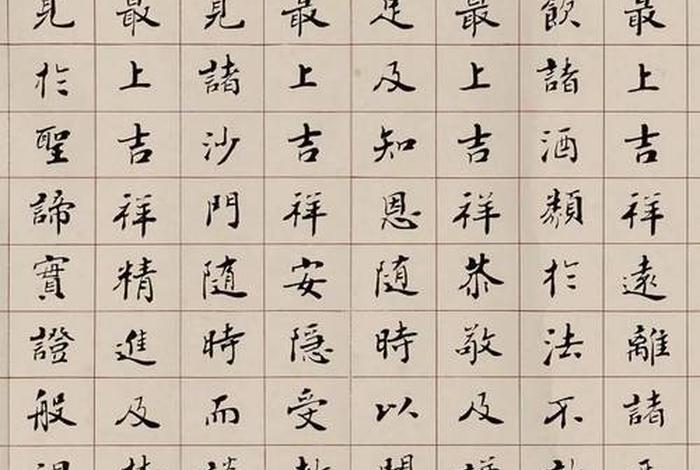 最上吉祥遠離諸
飲諸酒類於法不
最上吉祥恭敬及謙
足及知恩随時以聞
最上吉祥安隱受
見諸沙門随時而
最上吉祥精進及梵
見於聖諦實證般涅